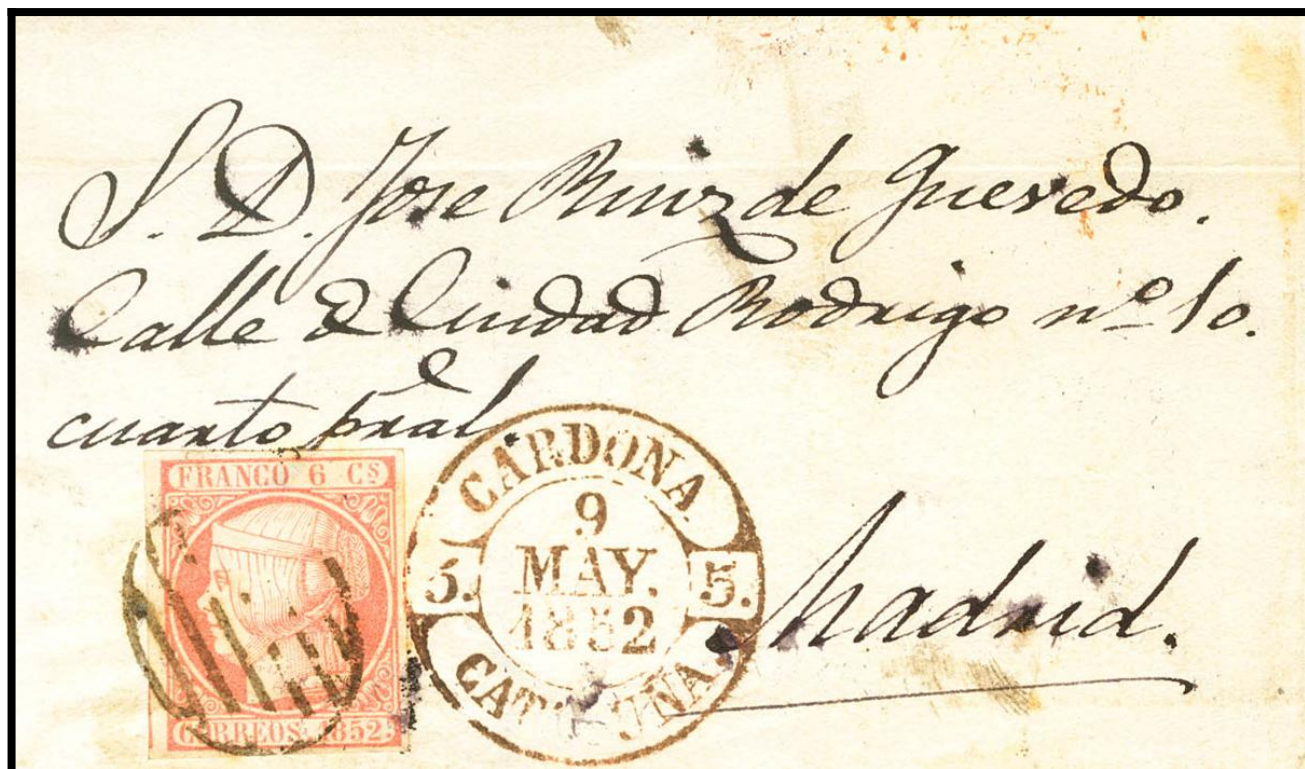 S. D. Jose Ruiz de Quevedo.
Calle d Ciudad Rodrigo nº 10.
cuarto pral.
Madrid.
FRANCO 6 Cs
CORREOS 1852
CARDONA
9
MAY.
1852
5. 5.
CATALUÑA.